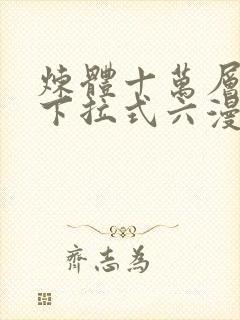 煉體十萬層
下拉式六漫
齊志為